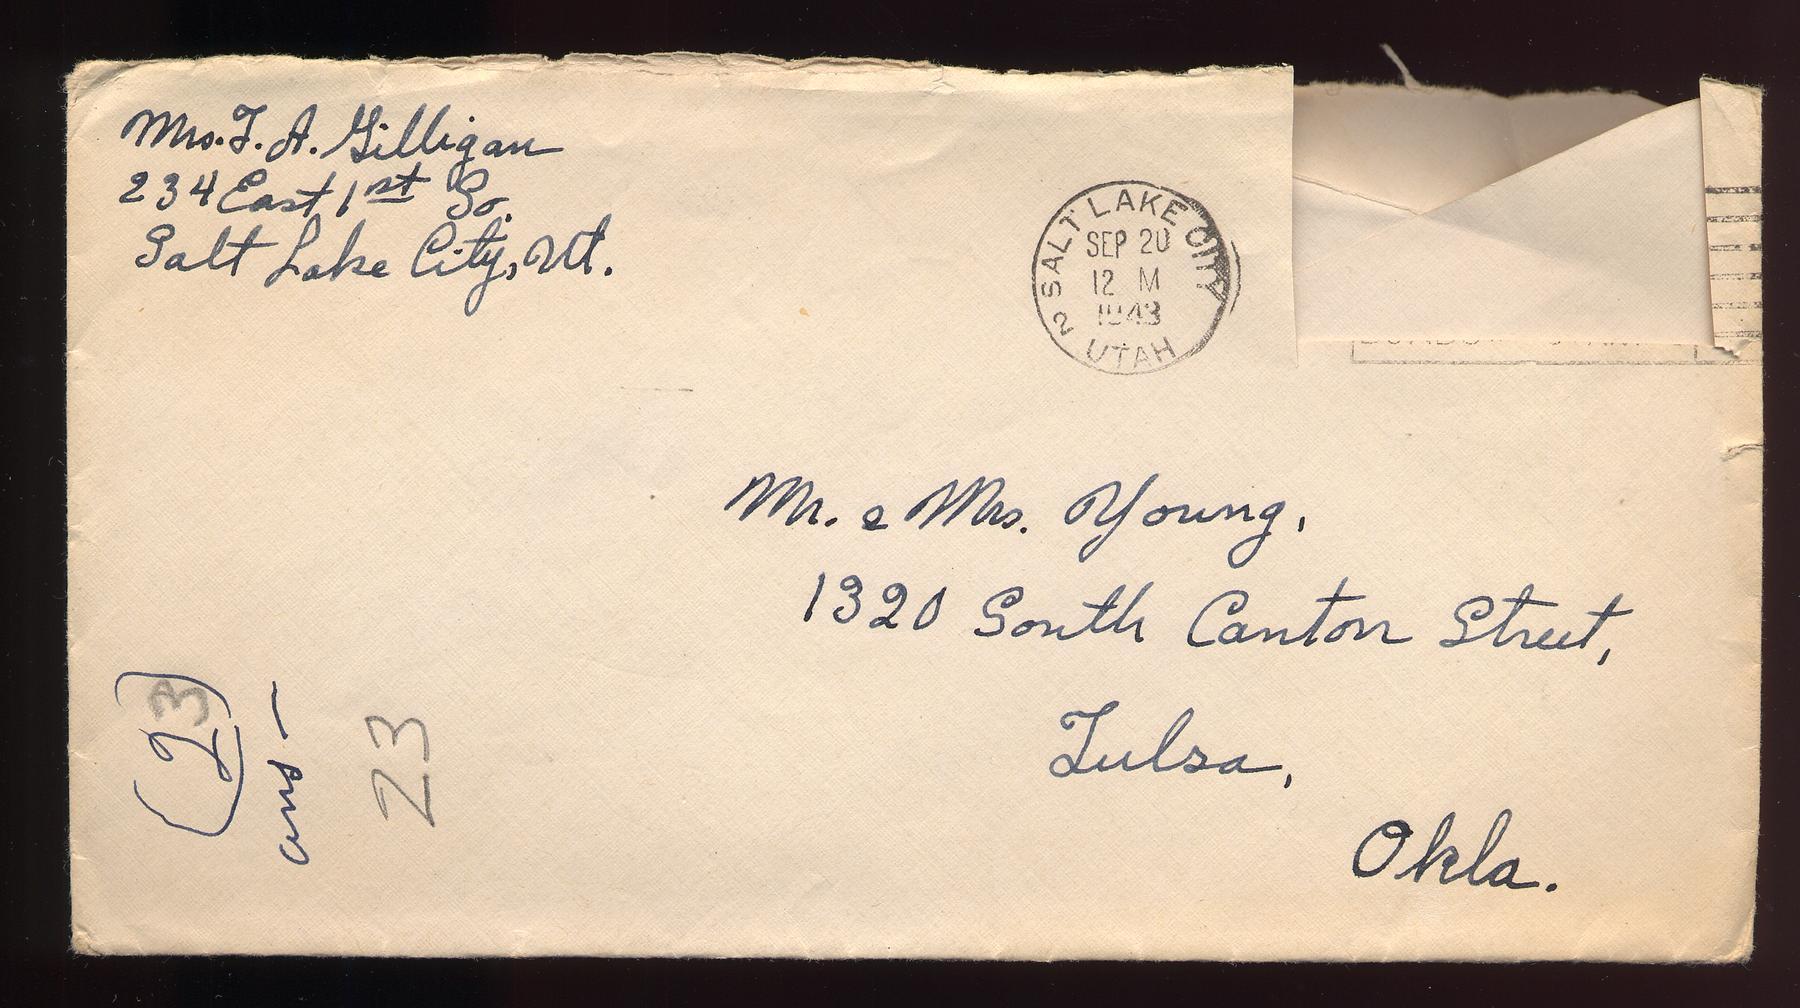 Mrs. F. A. Gilligan
234 East 1st So.
Salt Lake City, Ut.
SALT LAKE CITY
SEP 20
12 M
1943
2 UTAH
Mr. & Mrs. Young,
1320 South Canton Street,
Tulsa,
Okla.
(23)
ans –
23